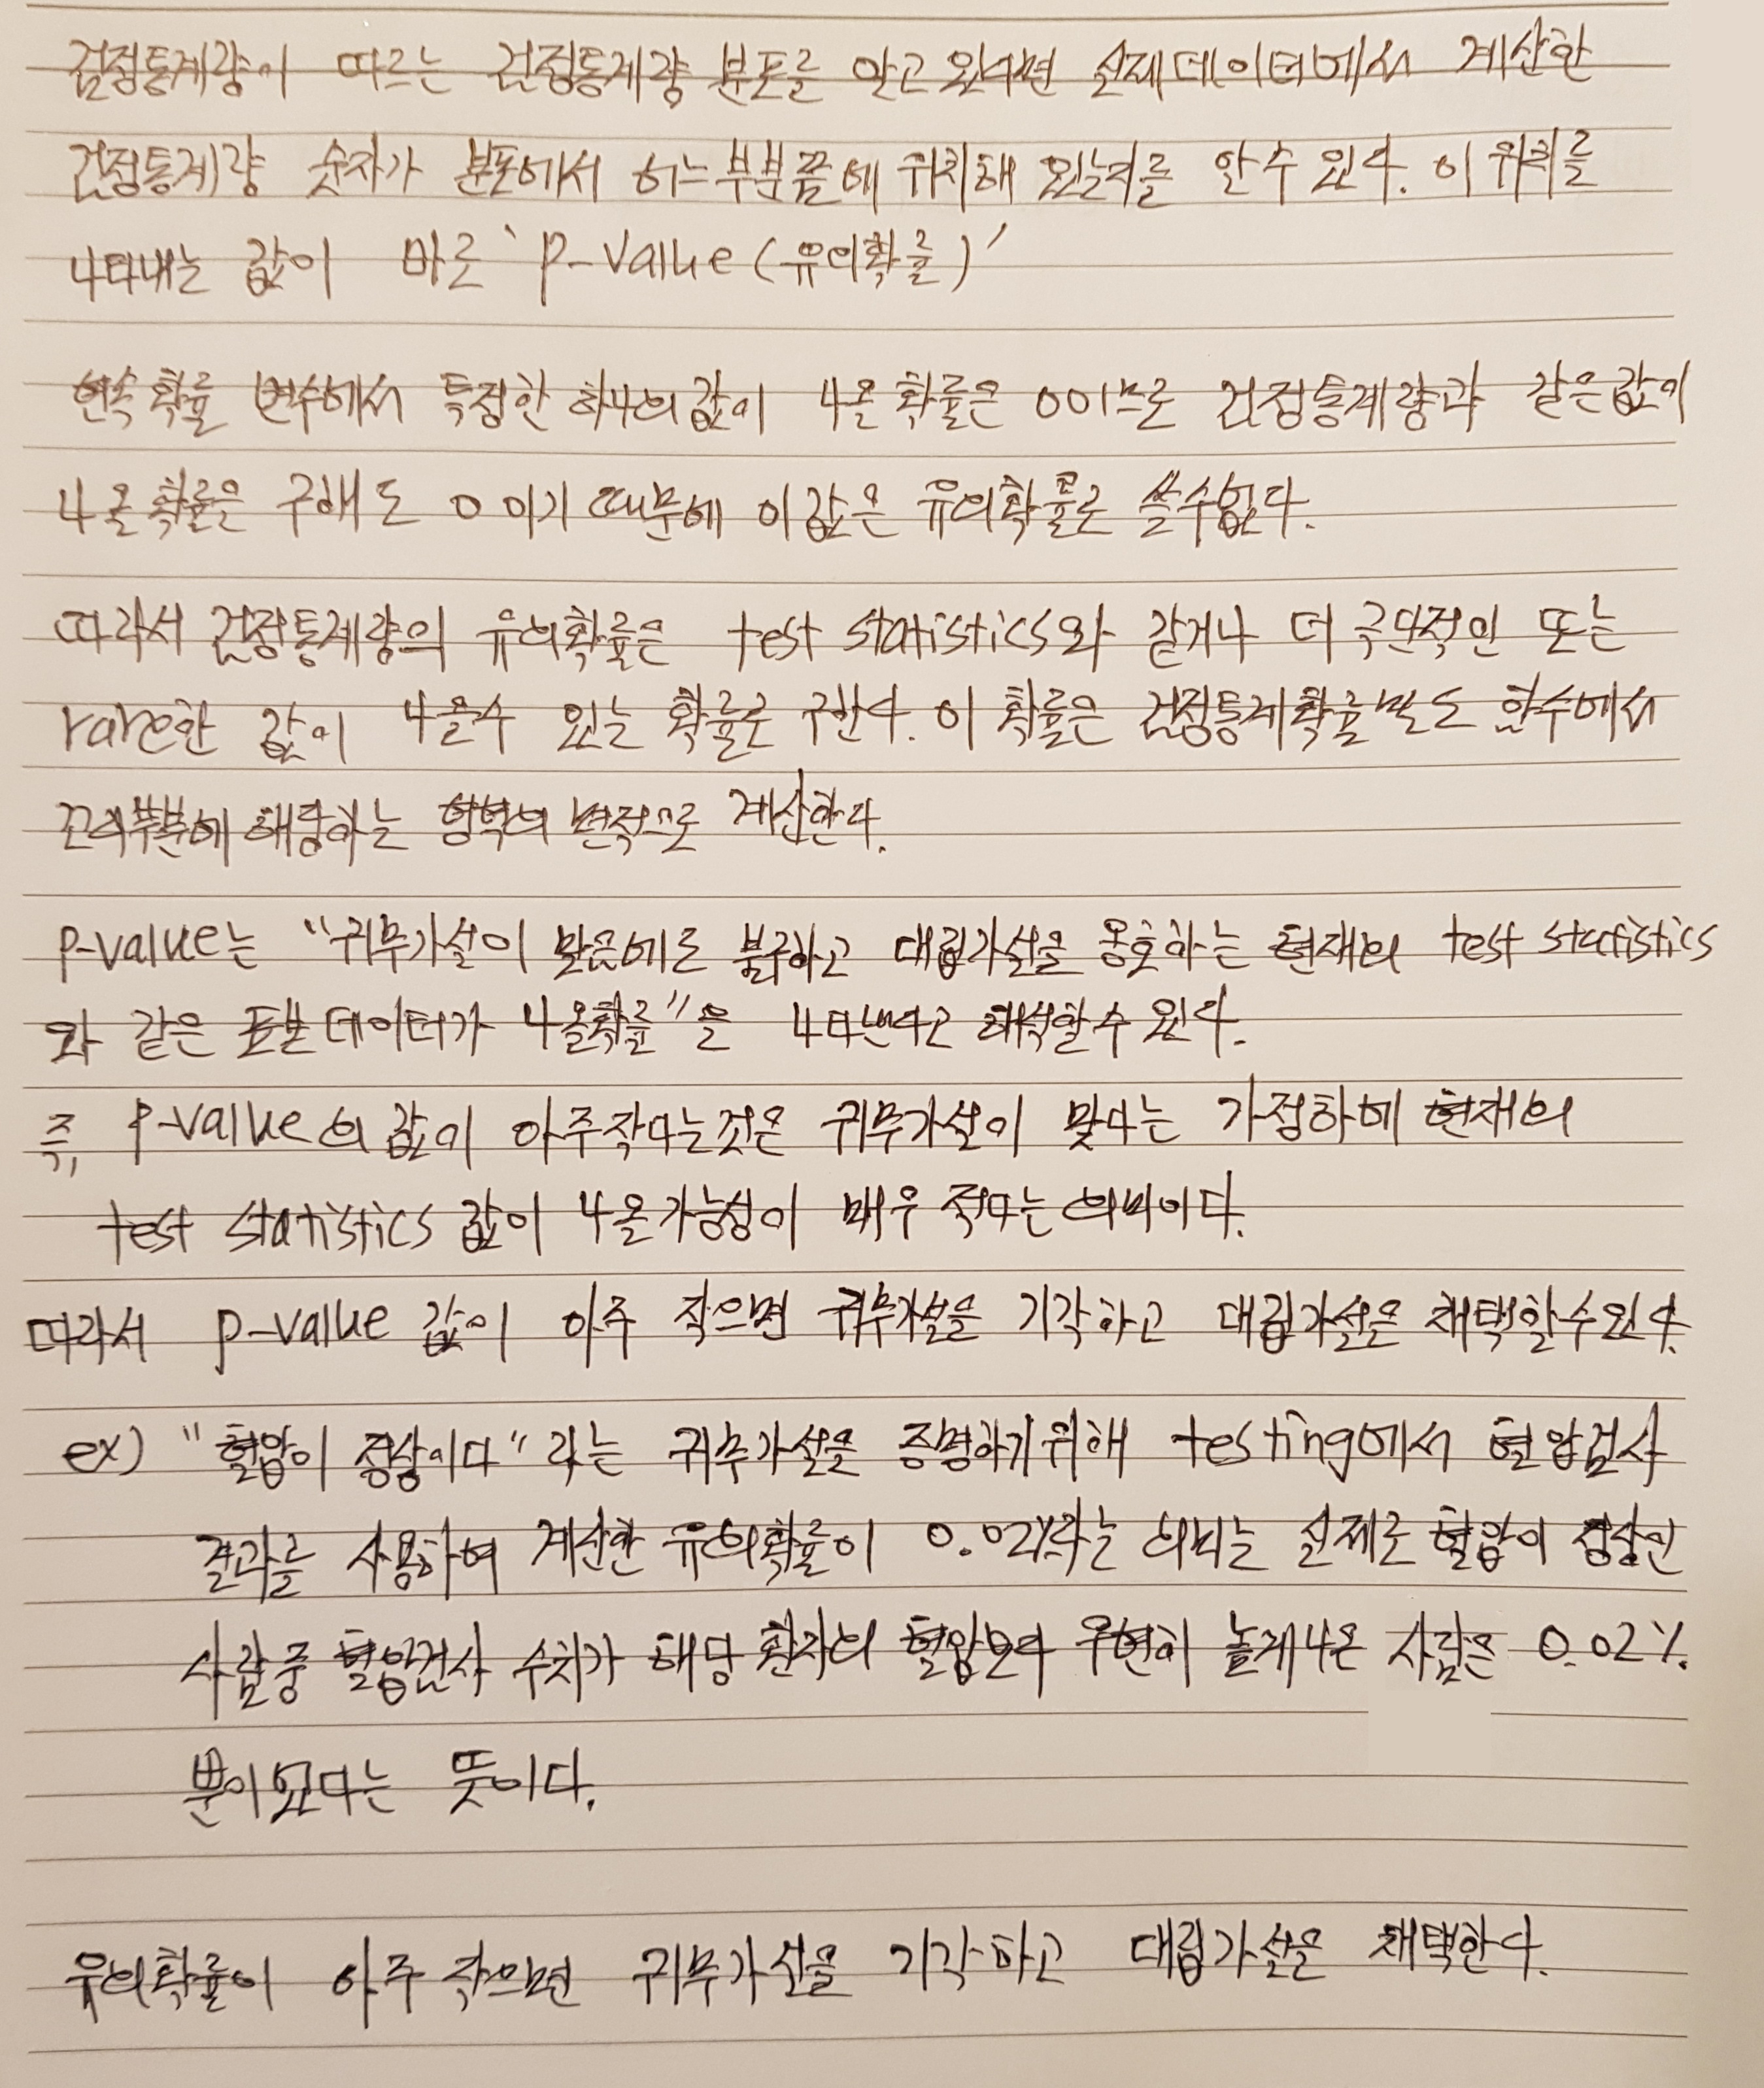 검정통계량이 따르는 검정통계량 분포를 알고 있다면 실제 데이터에서 계산한
검정통계량 숫자가 분포에서 어느 부분쯤에 위치해 있는지를 알 수 있다. 이 위치를
나타내는 값이 바로 'p-value(유의확률)'
연속 확률 변수에서 특정한 하나의 값이 나올 확률은 0이므로 검정통계량과 같은 값이
나올 확률을 구해도 0 이기 때문에 이 값은 유의확률로 쓸 수 없다.
따라서 검정통계량의 유의확률은 test statistics와 같거나 더 극단적인 또는
rare한 값이 나올 수 있는 확률로 구한다. 이 확률은 검정통계확률밀도 함수에서
꼬리부분에 해당하는 영역의 면적으로 계산한다.
p-value는 "귀무가설이 맞음에도 불구하고 대립가설을 옹호하는 현재의 test statistics
와 같은 표본 데이터가 나올확률"을 나타낸다고 해석할 수 있다.
즉, p-value의 값이 아주 작다는 것은 귀무가설이 맞다는 가정하에 현재의
test statistics 값이 나올 가능성이 매우 적다는 의미이다.
따라서 p-value 값이 아주 작으면 귀무가설을 기각하고 대립가설을 채택할 수 있다.
ex) "혈압이 정상이다" 라는 귀무가설을 증명하기 위해 testing에서 혈압검사
결과를 사용하여 계산한 유의확률이 0.02%라는 의미는 실제로 혈압이 정상인
사람 중 혈압검사 수치가 해당 환자의 혈압보다 우연히 높게 나온 사람은 0.02%
뿐이었다는 뜻이다.
유의확률이 아주 작으면 귀무가설을 기각하고 대립가설을 채택한다.